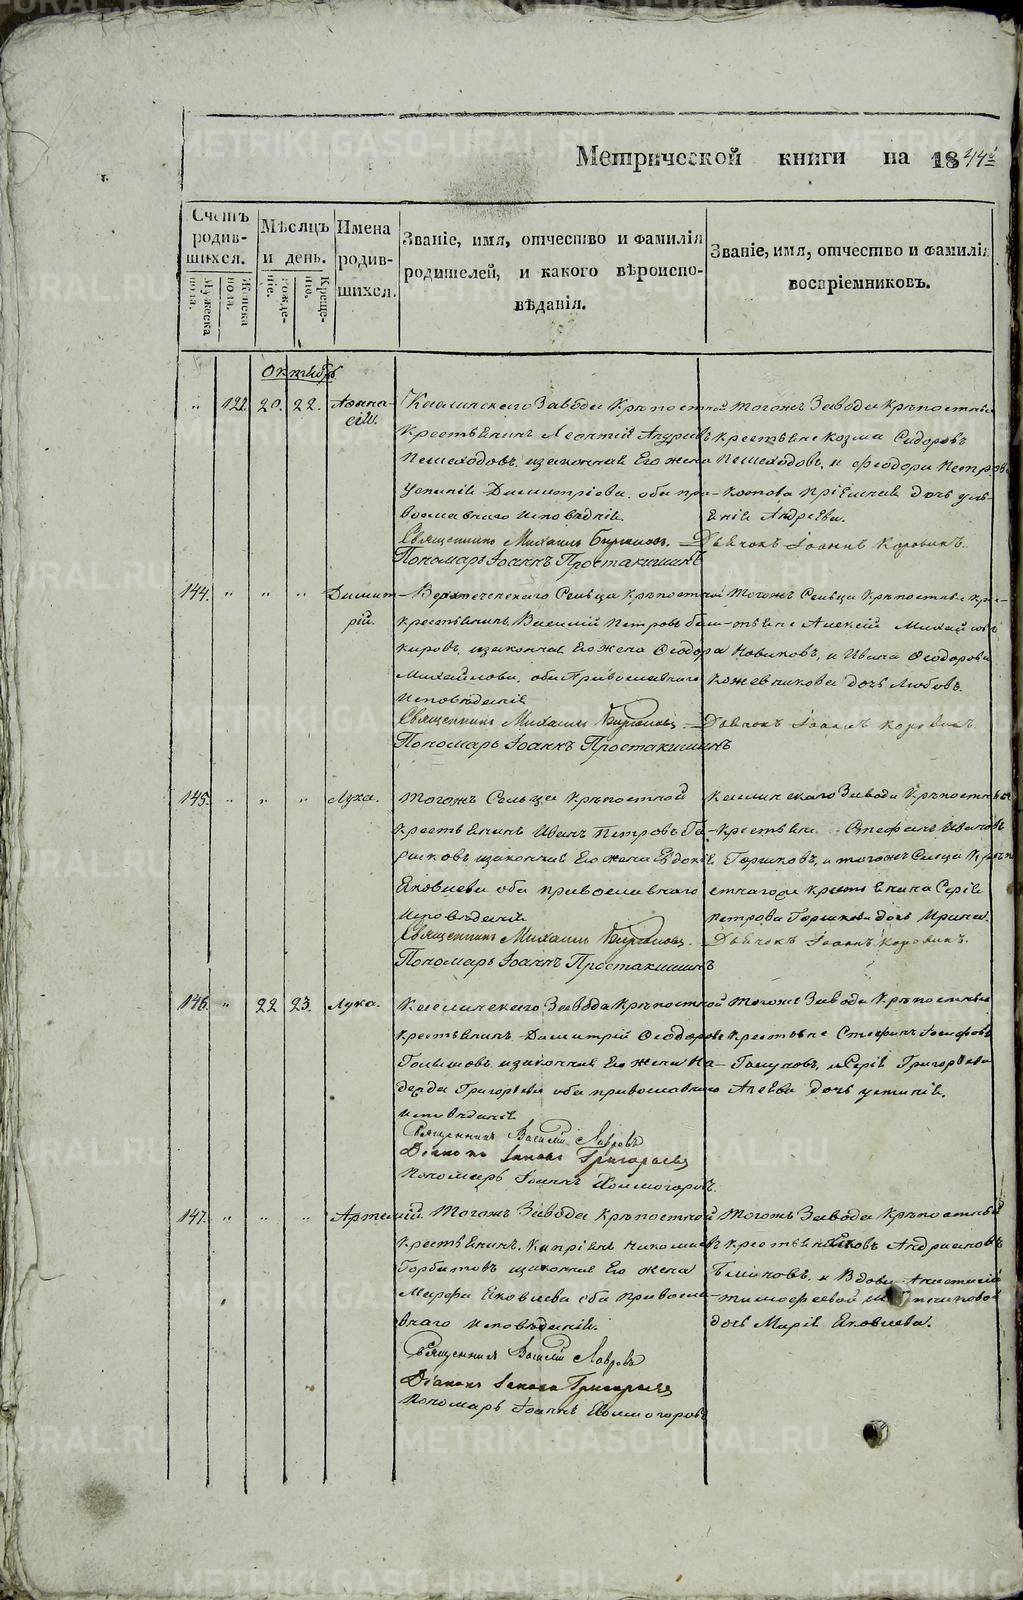 Метрической книги на 1844й
Счетъ родившихся.
Мужеска пола.
Женска пола.
Мѣсяцъ и день.
Рожденіе.
Крещеніе.
Имена родившихся.
Званіе, имя, отчество и фамилія родителей, и какого вѣроисповѣданія.
Званіе, имя, отчество и фамилія воспріемниковъ.
Октябрь
" 122. 20. 22.
Каслинскаго Завода Крѣпостной
Крестьянинъ Леонтій Андреевъ
Пешеходовъ, изаконная Его жена
Димитріева, оба пра-
вославнаго исповѣднія.
Священникъ Михаилъ
Пономарь Іоаннъ Простакишинъ
Тогожъ Завода Крѣпостные
крестьяне Козма Сидоровъ
Пешеходовъ, и Феодора Петрова
дочь
Андреева.
Дьячокъ Іоаннъ Коровинъ.
144. " " " Димит-
рій.
Сельца Крѣпостной
крестьянинъ Василій Петровъ Баш-
кировъ, изаконная Его жена Феодора
Михайлова, оба Православнаго
Исповѣданія
Священникъ Михаилъ
Пономарь Іоаннъ Простакишинъ
Тогожъ Сельца Крѣпостные кре-
стьяне Алексѣй Михайловъ
Новиковъ, и Ивана Феодорова
Кожевникова дочь Любовь.
Дьячокъ Іоаннъ Коровинъ
145. " " " Лука.
Тогожъ Сельца Крѣпостной
Крестьянинъ Иванъ Петровъ Го-
ршковъ изаконная Его жена Евдокія
Яковлева оба православнаго
Исповѣданія
Священникъ Михаилъ
Пономарь Іоаннъ Простакишинъ
Каслинскаго Завода Крѣпостные
крестьяне Стефанъ Ивановъ
Горшковъ, и тогожъ Сельца Крѣпо-
стнагоже крестьянина Сергія
Петрова Горшкова дочь Ирина.
Дьячокъ Іоаннъ Коровинъ.
146. " 22 23. Лука.
Каслинскаго Завода Крѣпостной
крестьянинъ Димитрій Феодоровъ
изаконная Его жена На-
дежда Григорьева оба православнаго
исповѣданія
Священникъ Василій Лавровъ
Діаконъ Іаковъ Григорьевъ
Пономарь Іоаннъ Холмогоровъ.
Тогоже Завода Крѣпостные
Крестьяне Стефанъ Іосифовъ
и Сергія Григорьева
дочь
147. " " " Артемій.
Тогожъ Завода Крѣпостной
крестьянинъ Кипріянъ Николаевъ
Горбатовъ изаконная Его жена
Марфа Яковлева оба Правосла-
внаго Исповѣданія.
Священникъ Василій Лавровъ
Діаконъ Іаковъ Григорьевъ
Пономарь Іоаннъ Холмогоровъ
Тогожъ Завода Крѣпостный
Андріановъ
Блиновъ, и Вдовы Анастасіи
Тимофеевой
дочь Марія Яковлева.
METRIKI.GASO-URAL.RU